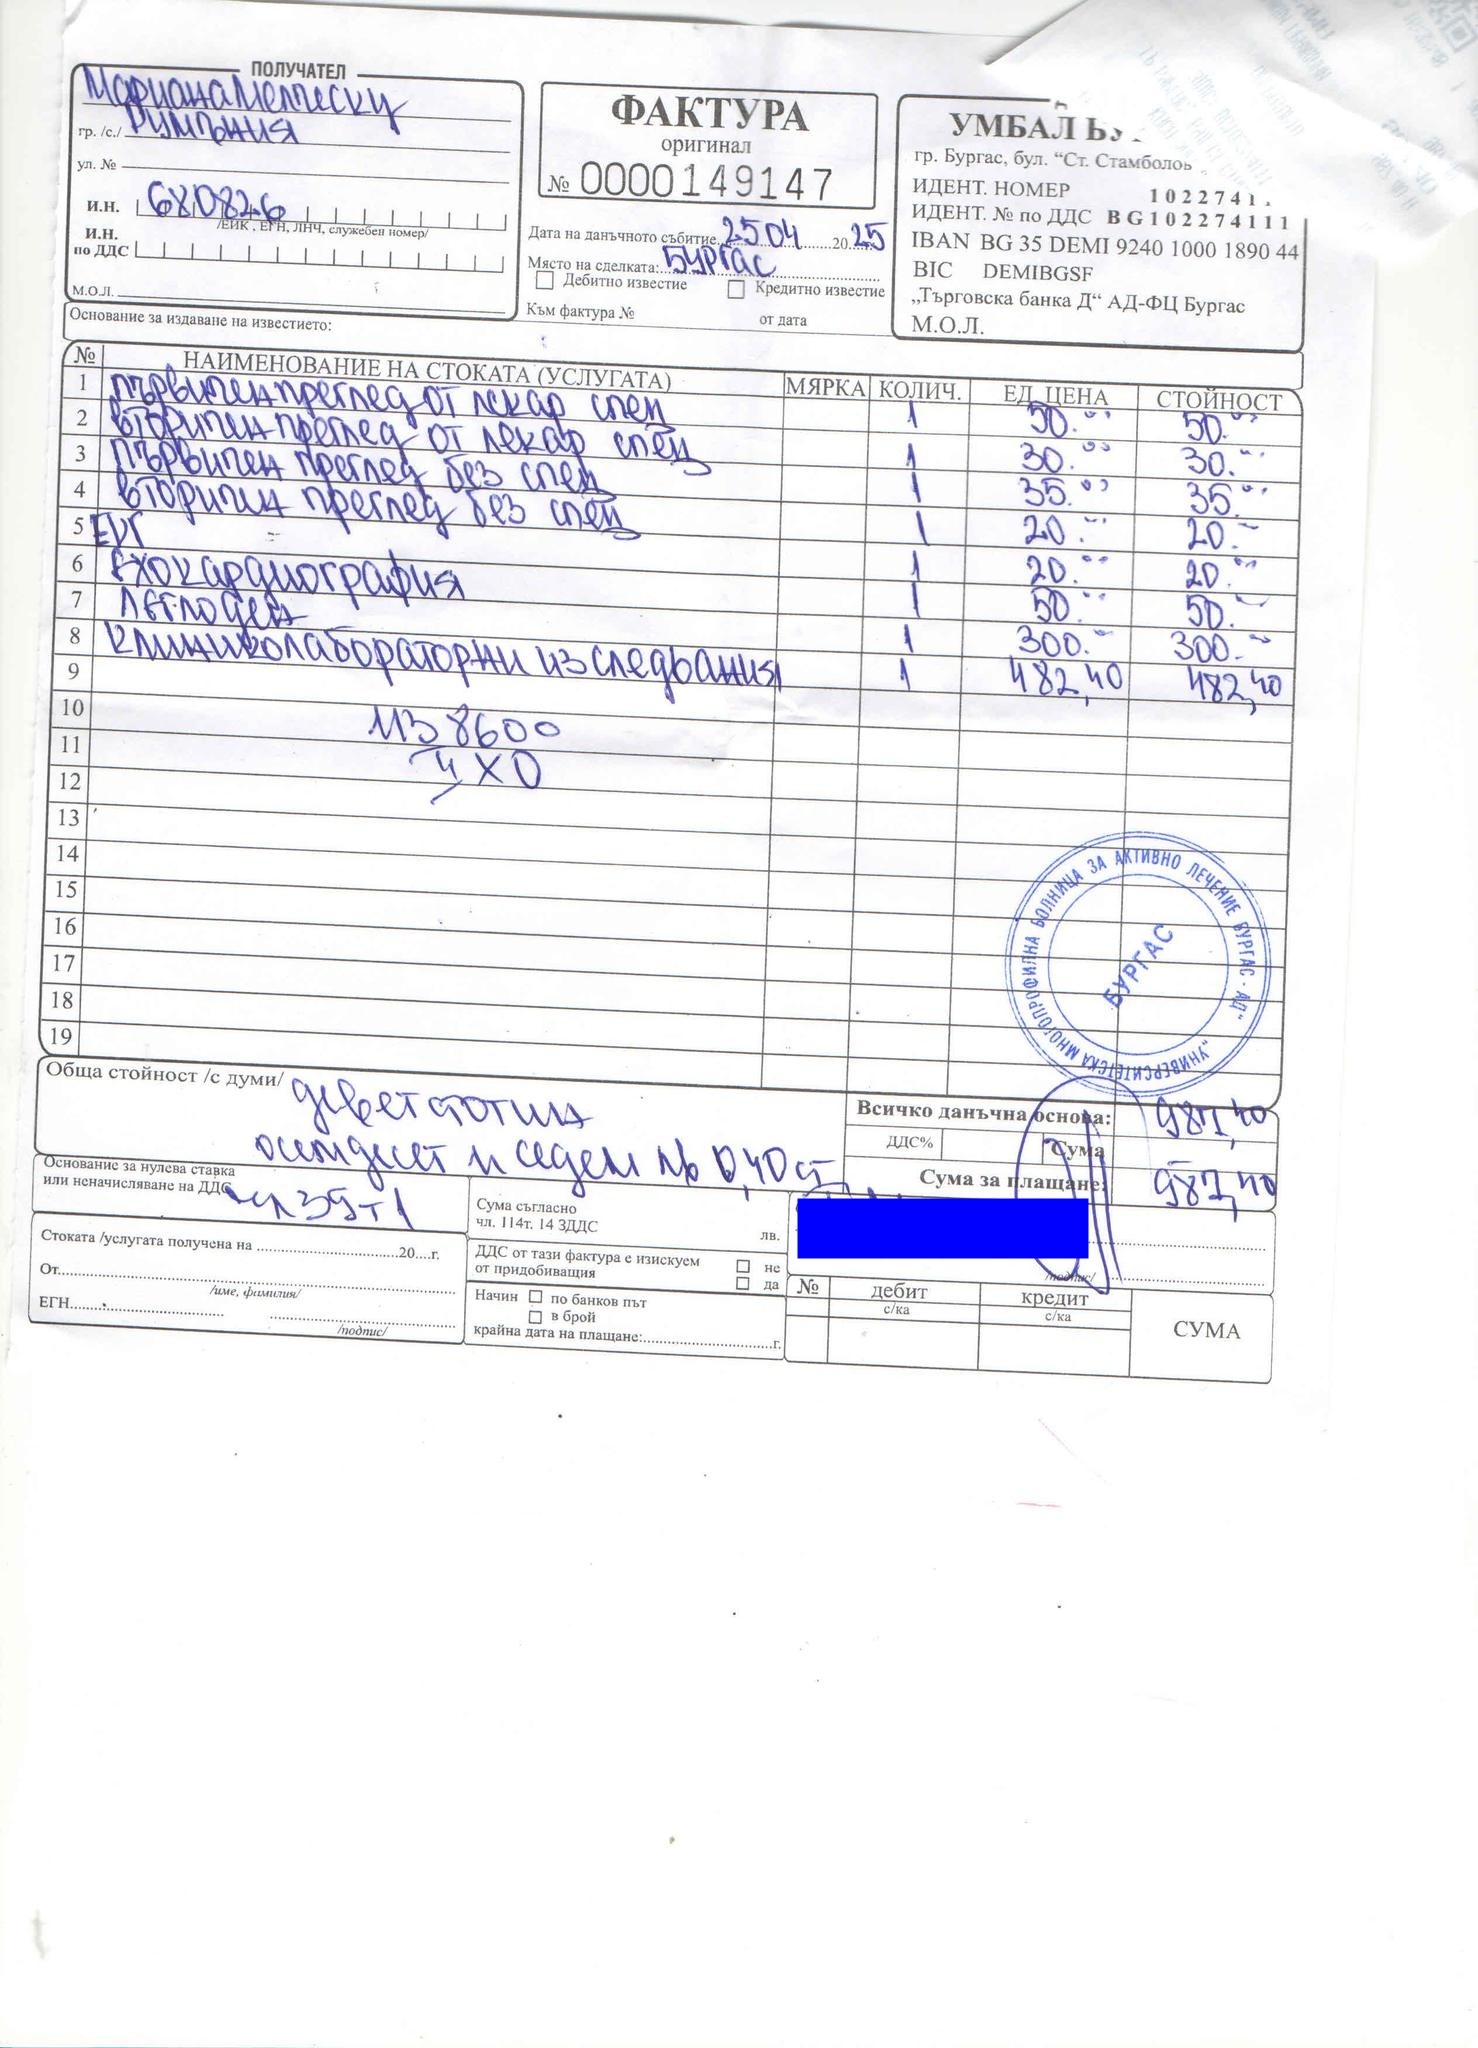 ПОЛУЧАТЕЛ
Мариана
гр. /с./ Румъния
ул. №
И.Н. 680826
/ЕИК , ЕГН, ЛНЧ, служебен номер/
И.Н.
по ДДС
М.О.Л.
ФАКТУРА
оригинал
№ 0000149147
Дата на данъчното събитие 25 04 2025
Място на сделката: Бургас
Дебитно известие Кредитно известие
Към фактура № от дата
УМБАЛ
гр. Бургас, бул. “Ст. Стамболов
ИДЕНТ. НОМЕР 10227411
ИДЕНТ. № по ДДС BG102274111
IBAN BG 35 DEMI 9240 1000 1890 44
BIC DEMIBGSF
„Търговска банка Д“ АД-ФЦ Бургас
М.О.Л.
Основание за издаване на известието:
№ НАИМЕНОВАНИЕ НА СТОКАТА (УСЛУГАТА) МЯРКА КОЛИЧ. ЕД. ЦЕНА СТОЙНОСТ
1 първичен преглед от лекар спец 1 50.00 50.00
2 вторичен преглед от лекар спец 1 30.00 30.00
3 първичен преглед без спец 1 35.00 35.00
4 вторичен преглед без спец 1 20.00 20.00
5 ЕКГ 1 20.00 20.00
6 Ехокардиография 1 50.00 50.00
7 леглоден 1 300.00 300.00
8 клиниколабораторни изследвания 1 482,40 482,40
9
10 ИЗ 8600
11 ХО
12
13
14
15
16
17
18
19
„УНИВЕРСИТЕТСКА МНОГОПРОФИЛНА БОЛНИЦА ЗА АКТИВНО ЛЕЧЕНИЕ БУРГАС - АД“
БУРГАС
Обща стойност /с думи/ деветстотин
осемдесет и седем лв 0,40 ст
Всичко данъчна основа: 987,40
ДДС% Сума
Сума за плащане: 987,40
Основание за нулева ставка
или неначисляване на ДДС чл 39 т 1
Сума съгласно
чл. 114т. 14 ЗДДС лв.
Стоката /услугата получена на 20....г.
От
/име, фамилия/
ЕГН
/подпис/
ДДС от тази фактура е изискуем
от придобиващия
не
да
Начин по банков път
в брой
крайна дата на плащане: г.
/подпис/
№ дебит кредит
с/ка с/ка
СУМА